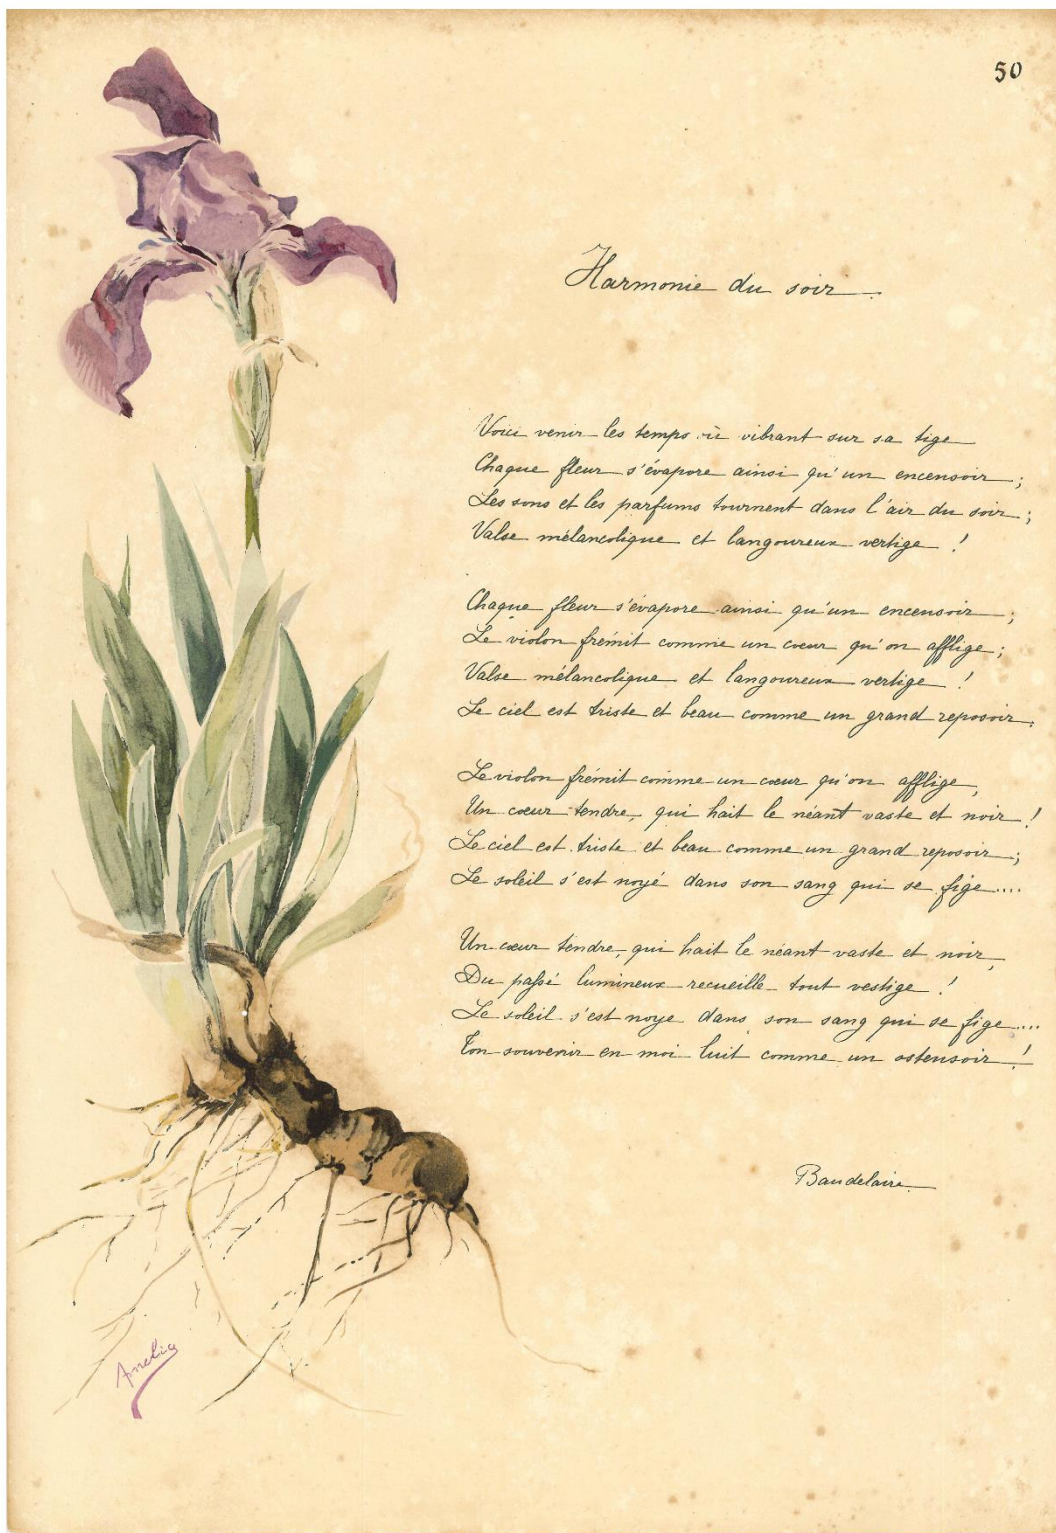 50
Harmonie du soir
Voici venir les temps où vibrant sur sa tige
Chaque fleur s'évapore ainsi qu'un encensoir ;
Les sons et les parfums tournent dans l'air du soir ;
Valse mélancolique et langoureux vertige !
Chaque fleur s'évapore ainsi qu'un encensoir ;
Le violon frémit comme un cœur qu'on afflige ;
Valse mélancolique et langoureux vertige !
Le ciel est triste et beau comme un grand reposoir.
Le violon frémit comme un cœur qu'on afflige,
Un cœur tendre, qui hait le néant vaste et noir !
Le ciel est triste et beau comme un grand reposoir ;
Le soleil s'est noyé dans son sang qui se fige....
Un cœur tendre, qui hait le néant vaste et noir,
Du passé lumineux recueille tout vestige !
Le soleil s'est noye dans son sang qui se fige....
Ton souvenir en moi luit comme un ostensoir !
Baudelaire
Amelia